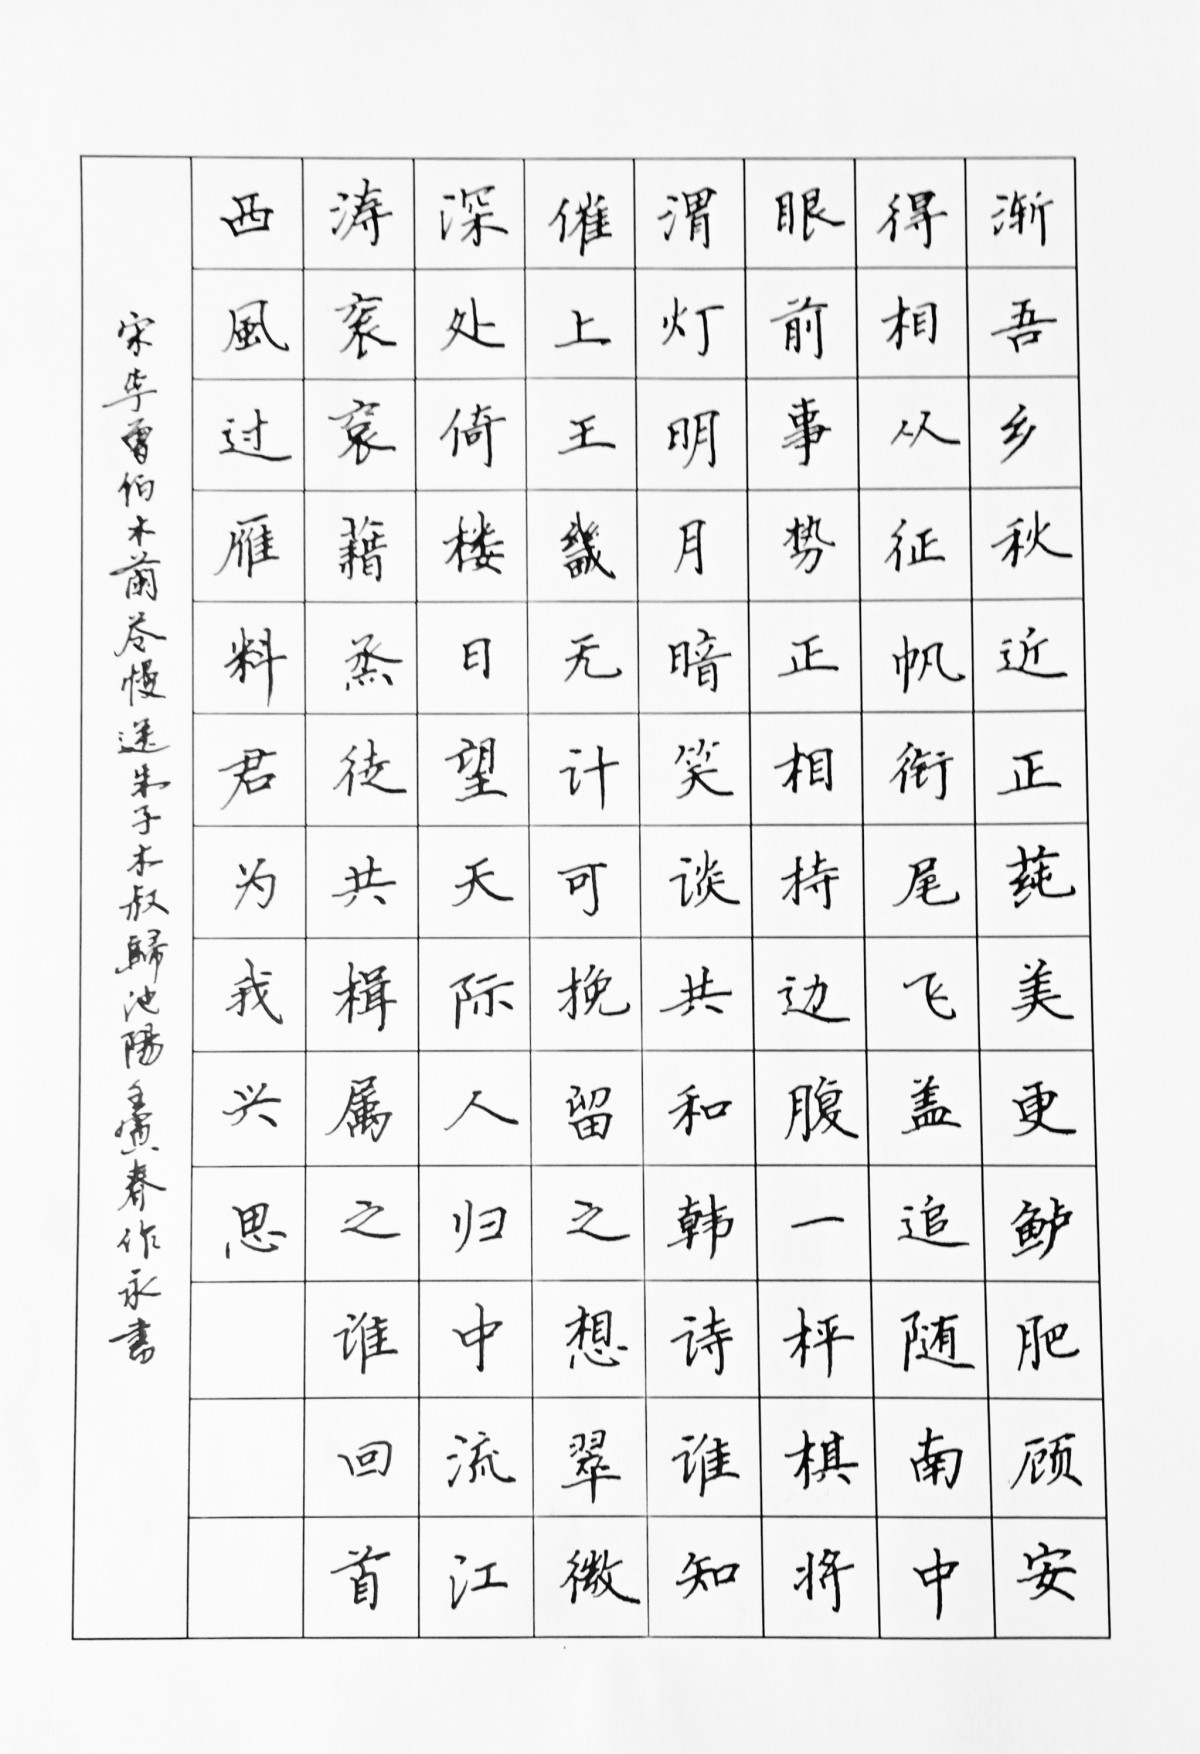 渐吾乡秋近正莼美更鲈肥顾安
得相从征帆衔尾飞盖追随南中
眼前事势正相持边腹一枰棋将
渭灯明月暗笑谈共和韩诗谁知
催上王畿无计可挽留之想翠微
深处倚楼日望天际人归中流江
涛衮衮藉烝徒共楫属之谁回首
西風过雁料君为我兴思
宋李曾伯木蘭花慢送朱子木叔歸池陽壬寅春作永書